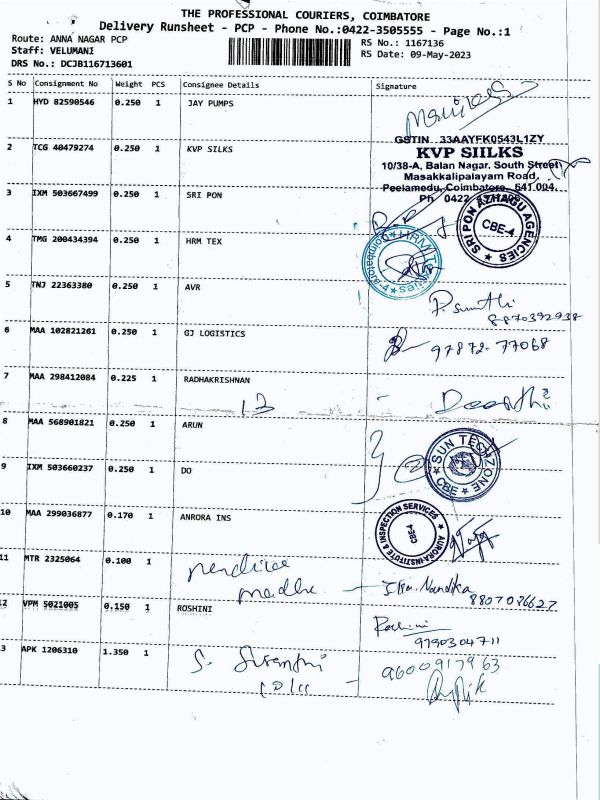 THE PROFESSIONAL COURIERS, COIMBATORE
Delivery Runsheet - PCP - Phone No.:0422-3505555 - Page No.:1
Route: ANNA NAGAR PCP
RS No.: 1167136
Staff: VELUMANI
RS Date: 09-May-2023
DRS No.: DCJB116713601
S No Consignment No Weight PCS Consignee Details Signature
1 HYD 82590546 0.250 1 JAY PUMPS
GSTIN 33AAYFK0543L1ZY
2 TCG 40479274 0.250 1 KVP SILKS
KVP SIILKS
10/38-A, Balan Nagar, South Street
Masakkalipalayam Road,
Peelamedu, Coimbatore - 641 004.
3 IXM 503667499 0.250 1 SRI PON
Ph 0422
SRI PON AZHAGU AGENCIES
CBE-4
4 TMG 200434394 0.250 1 HRM TEX
HRM
Coimbatore-4
5 TNJ 22363380 0.250 1 AVR
P. Sumthi
8870392938
6 MAA 102821261 0.250 1 GJ LOGISTICS
97872-77068
7 MAA 298412084 0.225 1 RADHAKRISHNAN
13
8 MAA 568901821 0.250 1 ARUN
SUN TECH ZONE
CBE
9 IXM 503660237 0.250 1 DO
10 MAA 299036877 0.170 1 ANRORA INS
AURORA INSTITUTE & INSPECTION SERVICES
CBE-4
11 MTR 2325064 0.100 1
Nandika
8807086627
12 VPM 5021005 0.150 1 ROSHINI
Roshini
9790304711
3 APK 1206310 1.350 1
9600917963